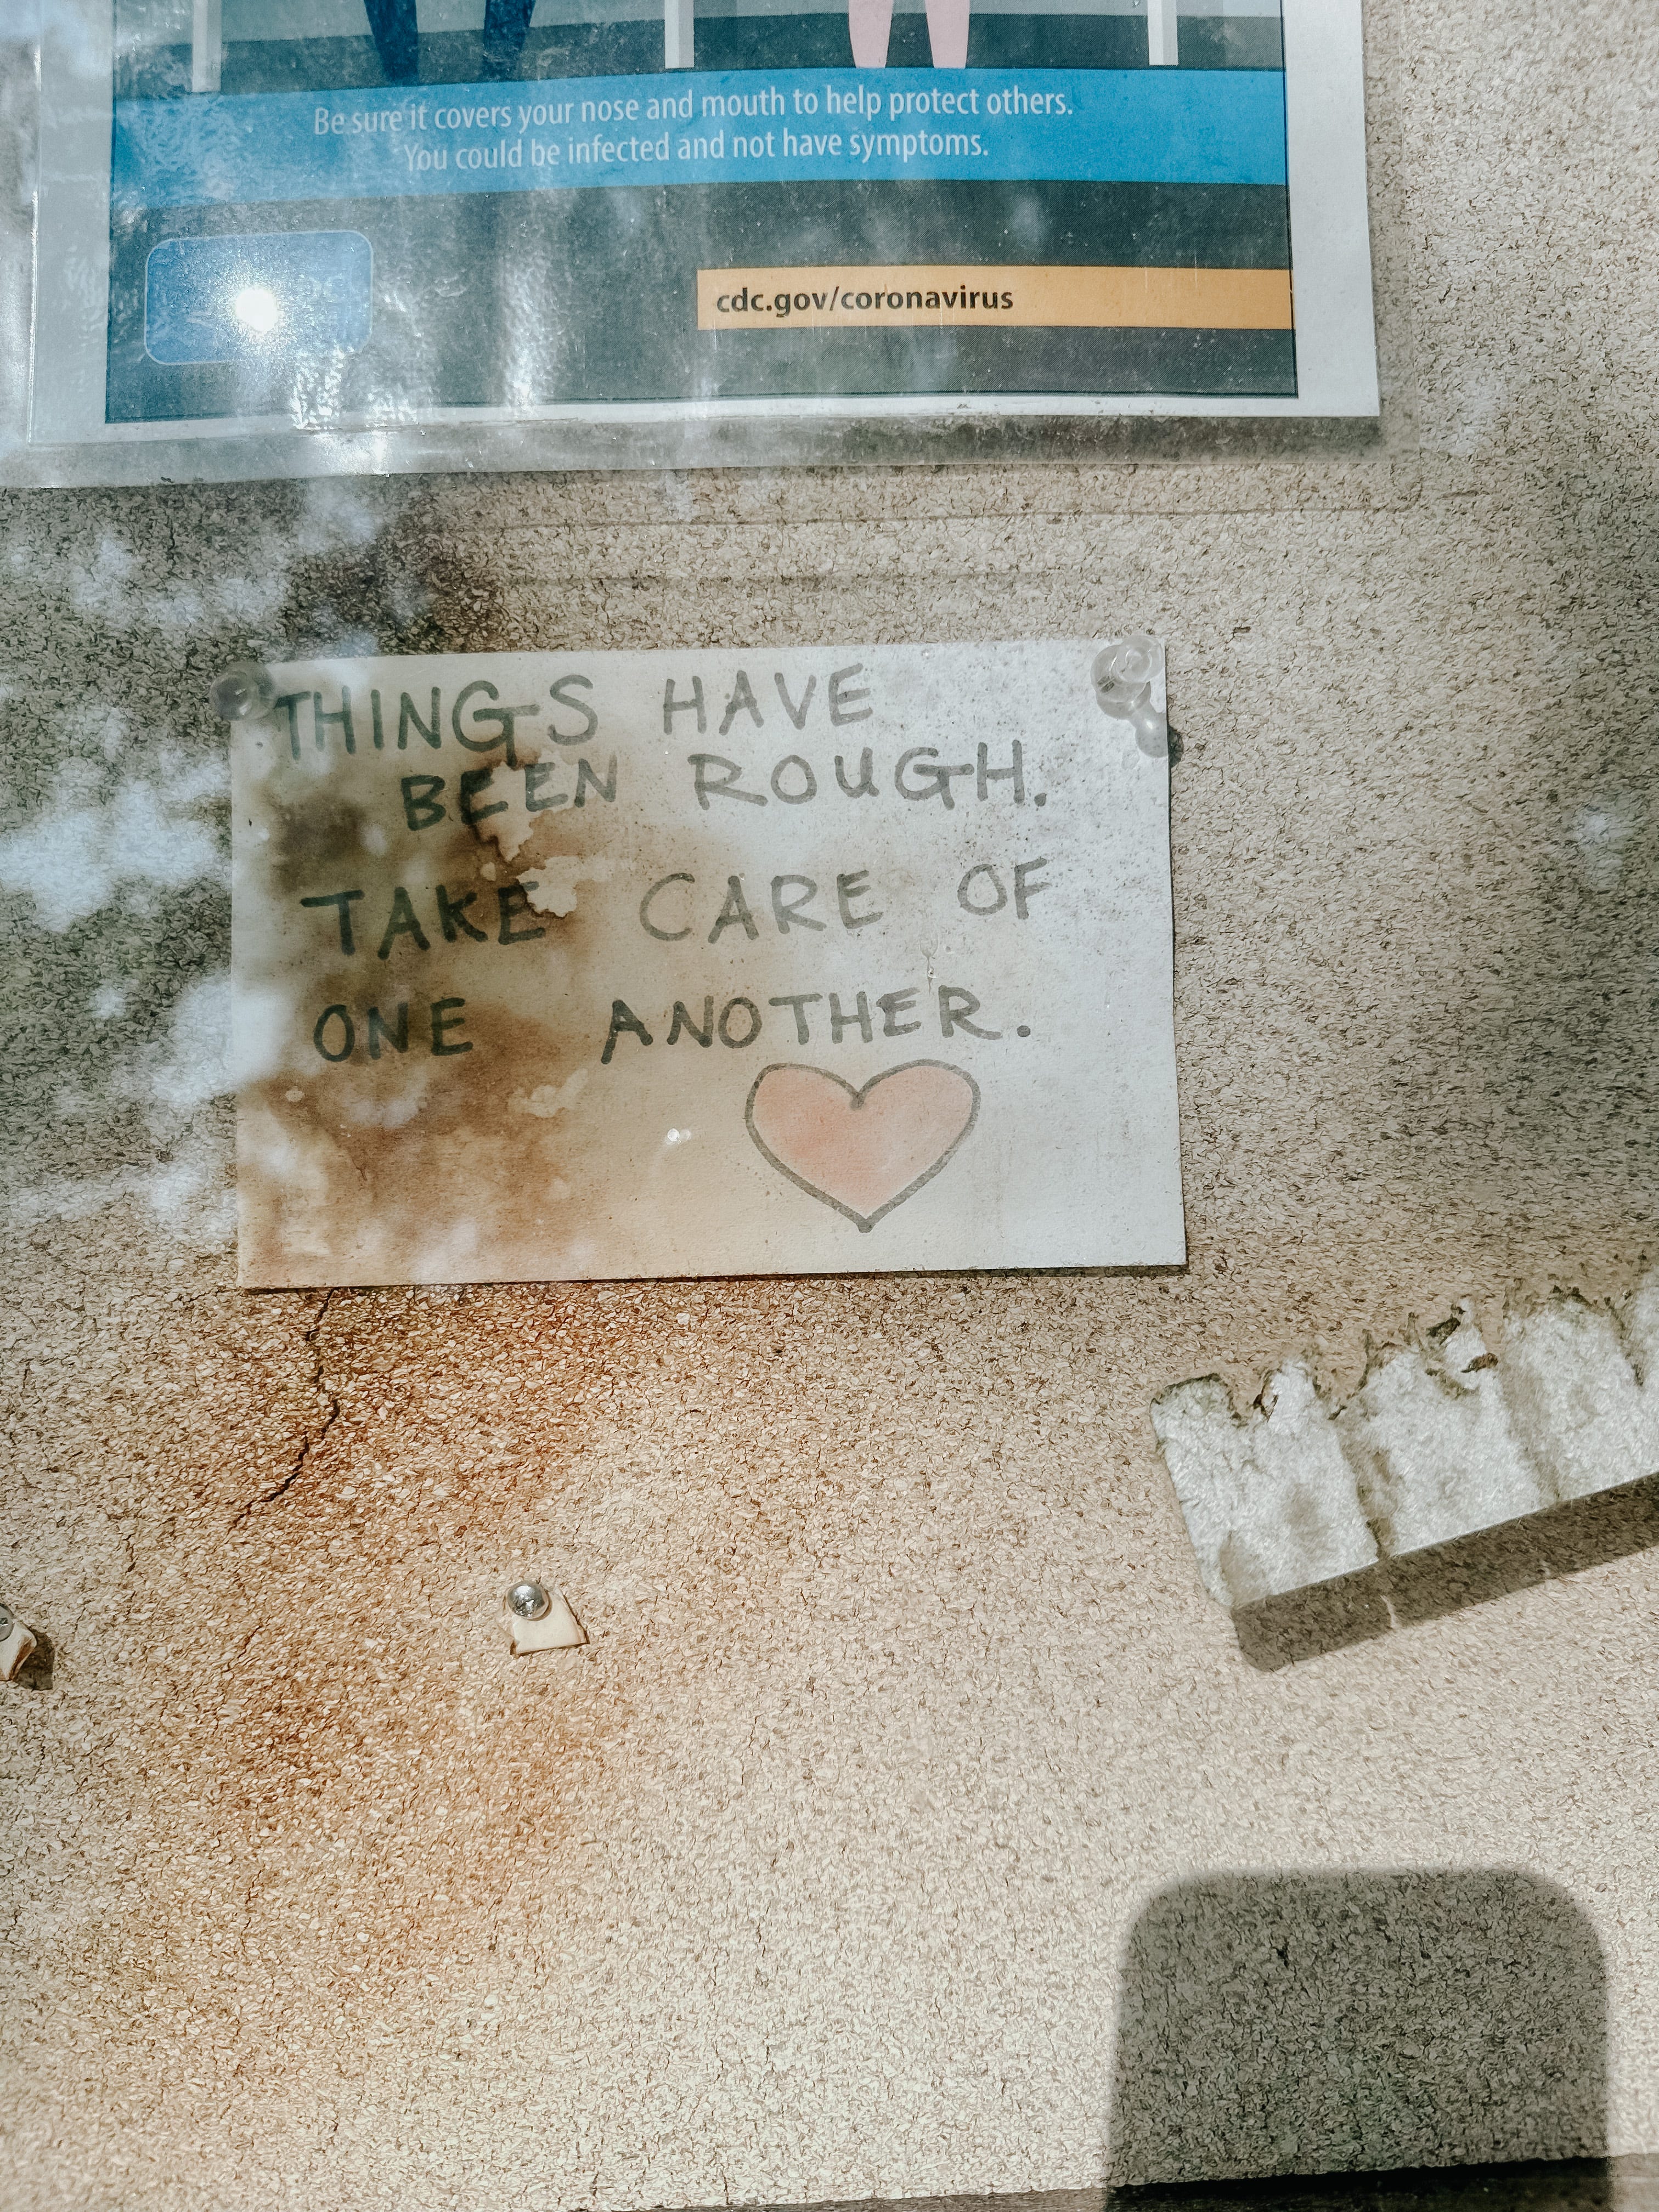 Be sure it covers your nose and mouth to help protect others.
You could be infected and not have symptoms.
cdc.gov/coronavirus
THINGS HAVE
BEEN ROUGH.
TAKE CARE OF
ONE ANOTHER.